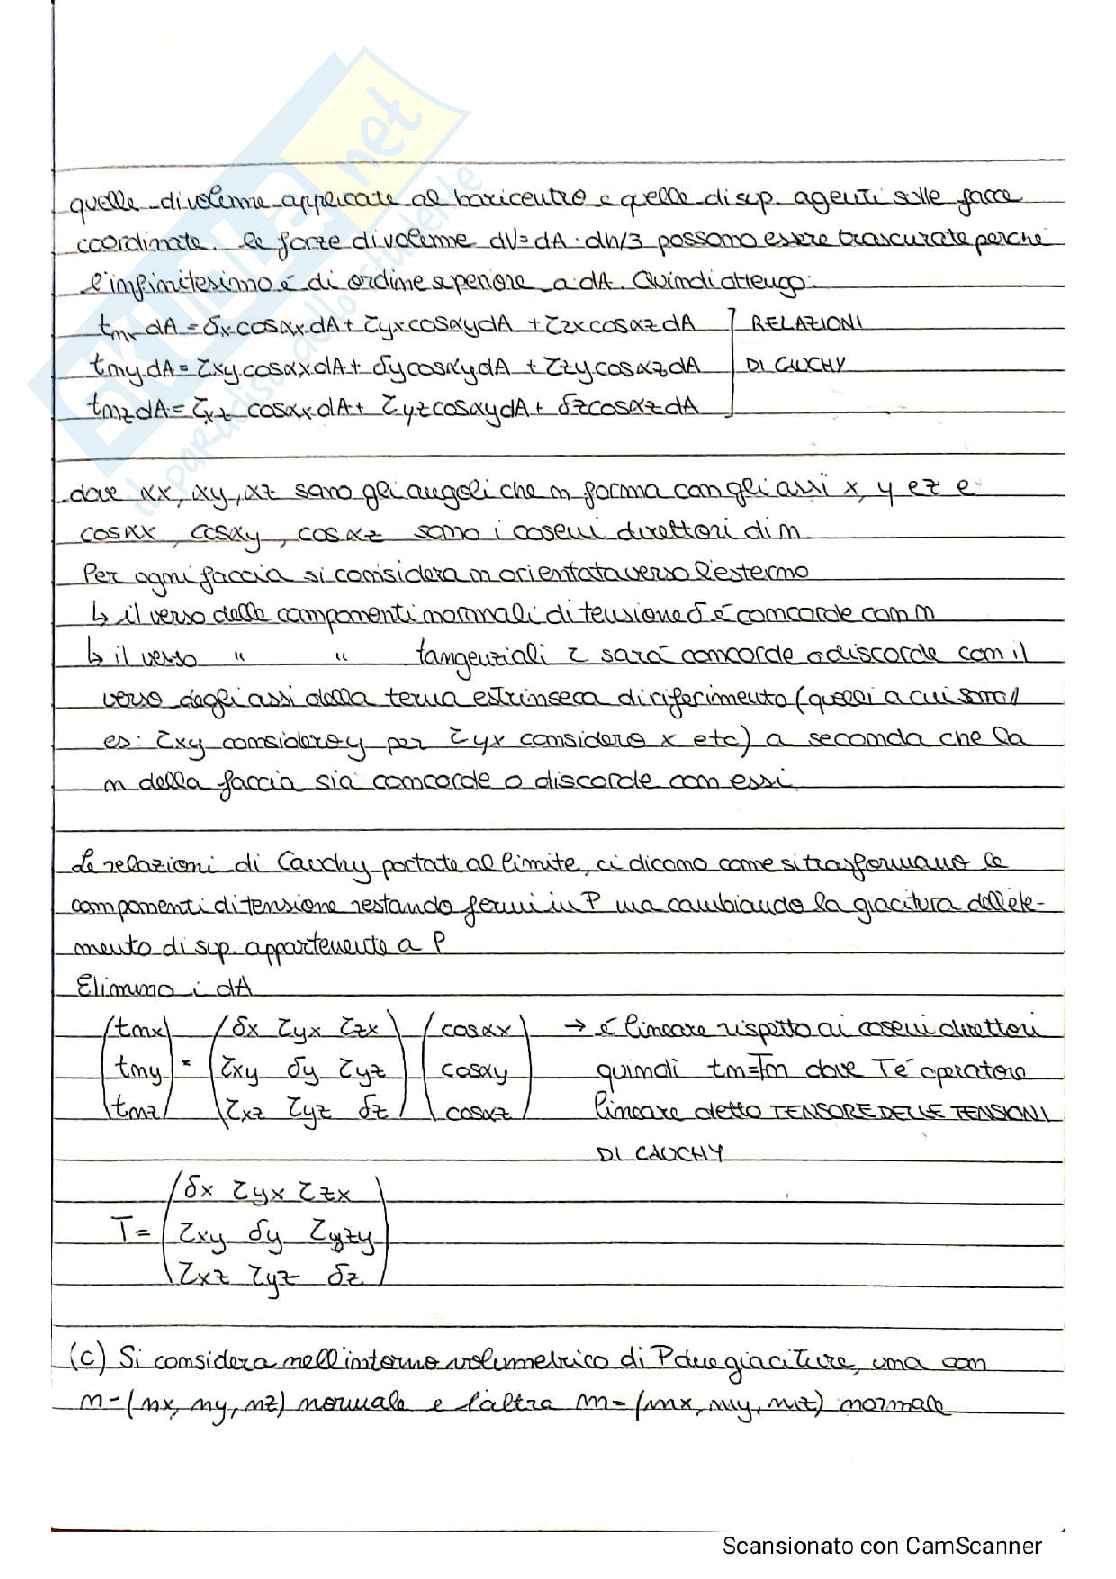 quelle di volume applicate al baricentro e quelle di sup. agenti sulle facce
coordinate. le forze di volume dV=dA·dh/3 possono essere trascurate perché
l'infinitesimo é di ordine superiore a dA. Quindi ottengo:
tnx dA = δx cosαx dA + τyx cosαy dA + τzx cosαz dA ] RELAZIONI
tny dA = τxy cosαx dA + δy cosαy dA + τzy cosαz dA DI CAUCHY
tnz dA = τxz cosαx dA + τyz cosαy dA + δz cosαz dA
dove αx, αy, αz sono gli angoli che n forma con gli assi x, y e z e
cosαx, cosαy, cosαz sono i coseni direttori di n
Per ogni faccia si considera n orientata verso l'esterno
↳ il verso delle componenti normali di tensione δ é concorde con n
↳ il verso " " tangenziali τ sará concorde o discorde con il
verso degli assi della terna estrinseca di riferimento (quelli a cui sono //
es: τxy considero y per τyx considero x etc) a seconda che la
n della faccia sia concorde o discorde con essi
Le relazioni di Cauchy portate al limite, ci dicono come si trasformano le
componenti di tensione restando fermi in P ma cambiando la giacitura dell'ele-
mento di sup. appartenente a P
Elimino i dA
(tnx) (δx τyx τzx) (cosαx) → é lineare rispetto ai coseni direttori
(tny) = (τxy δy τyz) (cosαy) quindi tn=Tn dove T é operatore
(tnz) (τxz τyz δz) (cosαz) lineare detto TENSORE DELLE TENSIONI
DI CAUCHY
(δx τyx τzx)
T = (τxy δy τyzy)
(τxz τyz δz)
(c) Si considera nell'intorno volumetrico di P due giaciture, una con
n=(nx, ny, nz) normale e l'altra m=(mx, my, mz) normale
Scansionato con CamScanner
skuola.net
il paradiso dello studente